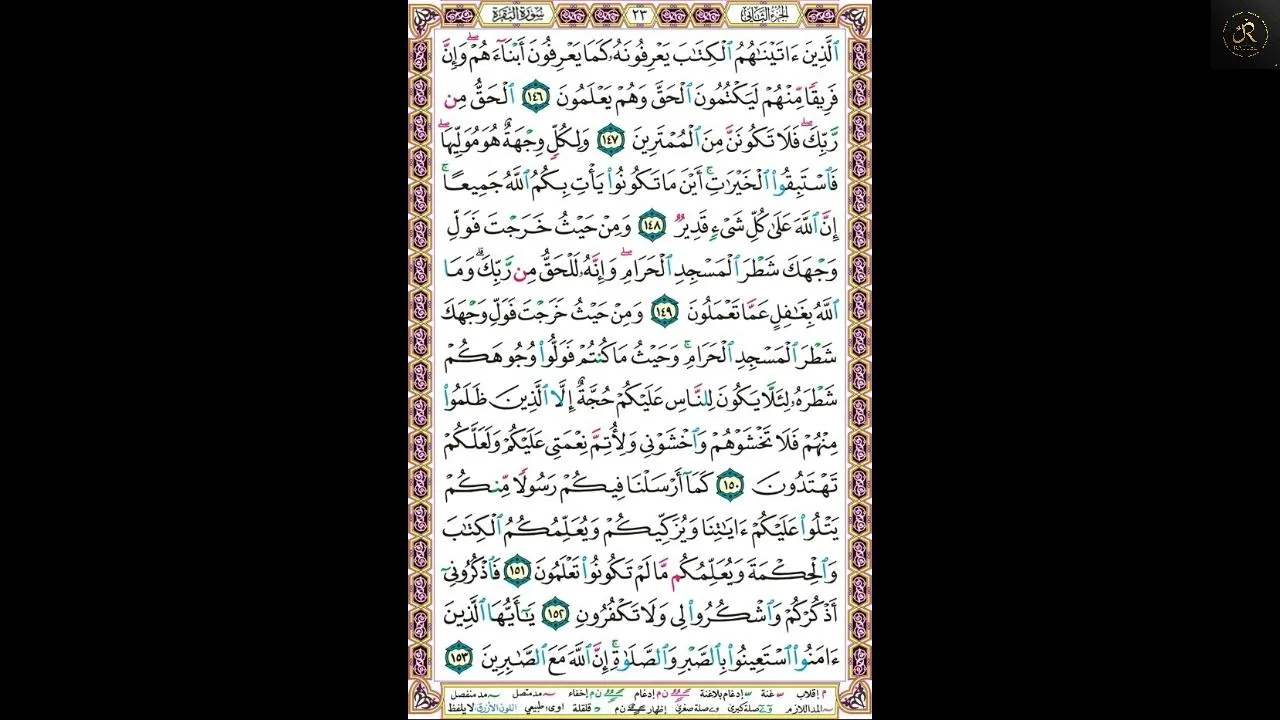 الجزء الثاني ٢٣ سورة البقرة
ٱلَّذِينَ ءَاتَيْنَٰهُمُ ٱلْكِتَٰبَ يَعْرِفُونَهُۥ كَمَا يَعْرِفُونَ أَبْنَآءَهُمْۖ وَإِنَّ
فَرِيقًا مِّنْهُمْ لَيَكْتُمُونَ ٱلْحَقَّ وَهُمْ يَعْلَمُونَ ١٤٦ ٱلْحَقُّ مِن
رَّبِّكَۖ فَلَا تَكُونَنَّ مِنَ ٱلْمُمْتَرِينَ ١٤٧ وَلِكُلٍّ وِجْهَةٌ هُوَ مُوَلِّيهَاۖ
فَٱسْتَبِقُوا۟ ٱلْخَيْرَٰتِۚ أَيْنَ مَا تَكُونُوا۟ يَأْتِ بِكُمُ ٱللَّهُ جَمِيعًاۚ
إِنَّ ٱللَّهَ عَلَىٰ كُلِّ شَىْءٍ قَدِيرٌ ١٤٨ وَمِنْ حَيْثُ خَرَجْتَ فَوَلِّ
وَجْهَكَ شَطْرَ ٱلْمَسْجِدِ ٱلْحَرَامِۖ وَإِنَّهُۥ لَلْحَقُّ مِن رَّبِّكَۗ وَمَا
ٱللَّهُ بِغَٰفِلٍ عَمَّا تَعْمَلُونَ ١٤٩ وَمِنْ حَيْثُ خَرَجْتَ فَوَلِّ وَجْهَكَ
شَطْرَ ٱلْمَسْجِدِ ٱلْحَرَامِۚ وَحَيْثُ مَا كُنتُمْ فَوَلُّوا۟ وُجُوهَكُمْ
شَطْرَهُۥ لِئَلَّا يَكُونَ لِلنَّاسِ عَلَيْكُمْ حُجَّةٌ إِلَّا ٱلَّذِينَ ظَلَمُوا۟
مِنْهُمْ فَلَا تَخْشَوْهُمْ وَٱخْشَوْنِى وَلِأُتِمَّ نِعْمَتِى عَلَيْكُمْ وَلَعَلَّكُمْ
تَهْتَدُونَ ١٥٠ كَمَآ أَرْسَلْنَا فِيكُمْ رَسُولًا مِّنكُمْ
يَتْلُوا۟ عَلَيْكُمْ ءَايَٰتِنَا وَيُزَكِّيكُمْ وَيُعَلِّمُكُمُ ٱلْكِتَٰبَ
وَٱلْحِكْمَةَ وَيُعَلِّمُكُم مَّا لَمْ تَكُونُوا۟ تَعْلَمُونَ ١٥١ فَٱذْكُرُونِىٓ
أَذْكُرْكُمْ وَٱشْكُرُوا۟ لِى وَلَا تَكْفُرُونِ ١٥٢ يَٰٓأَيُّهَا ٱلَّذِينَ
ءَامَنُوا۟ ٱسْتَعِينُوا۟ بِٱلصَّبْرِ وَٱلصَّلَوٰةِۚ إِنَّ ٱللَّهَ مَعَ ٱلصَّٰبِرِينَ ١٥٣
م إقلاب غنة إدغام بلاغنة ن م إدغام ن م إخفاء مد متصل مد منفصل
المد اللازم صلة كبرى صلة صغرى إظهار ن م قلقلة طبيعي اللون الأزرق لا يلفظ